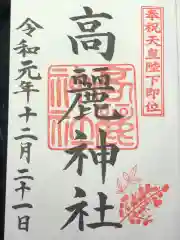 奉祝天皇陛下御即位
高麗神社
令和元年十二月二十一日